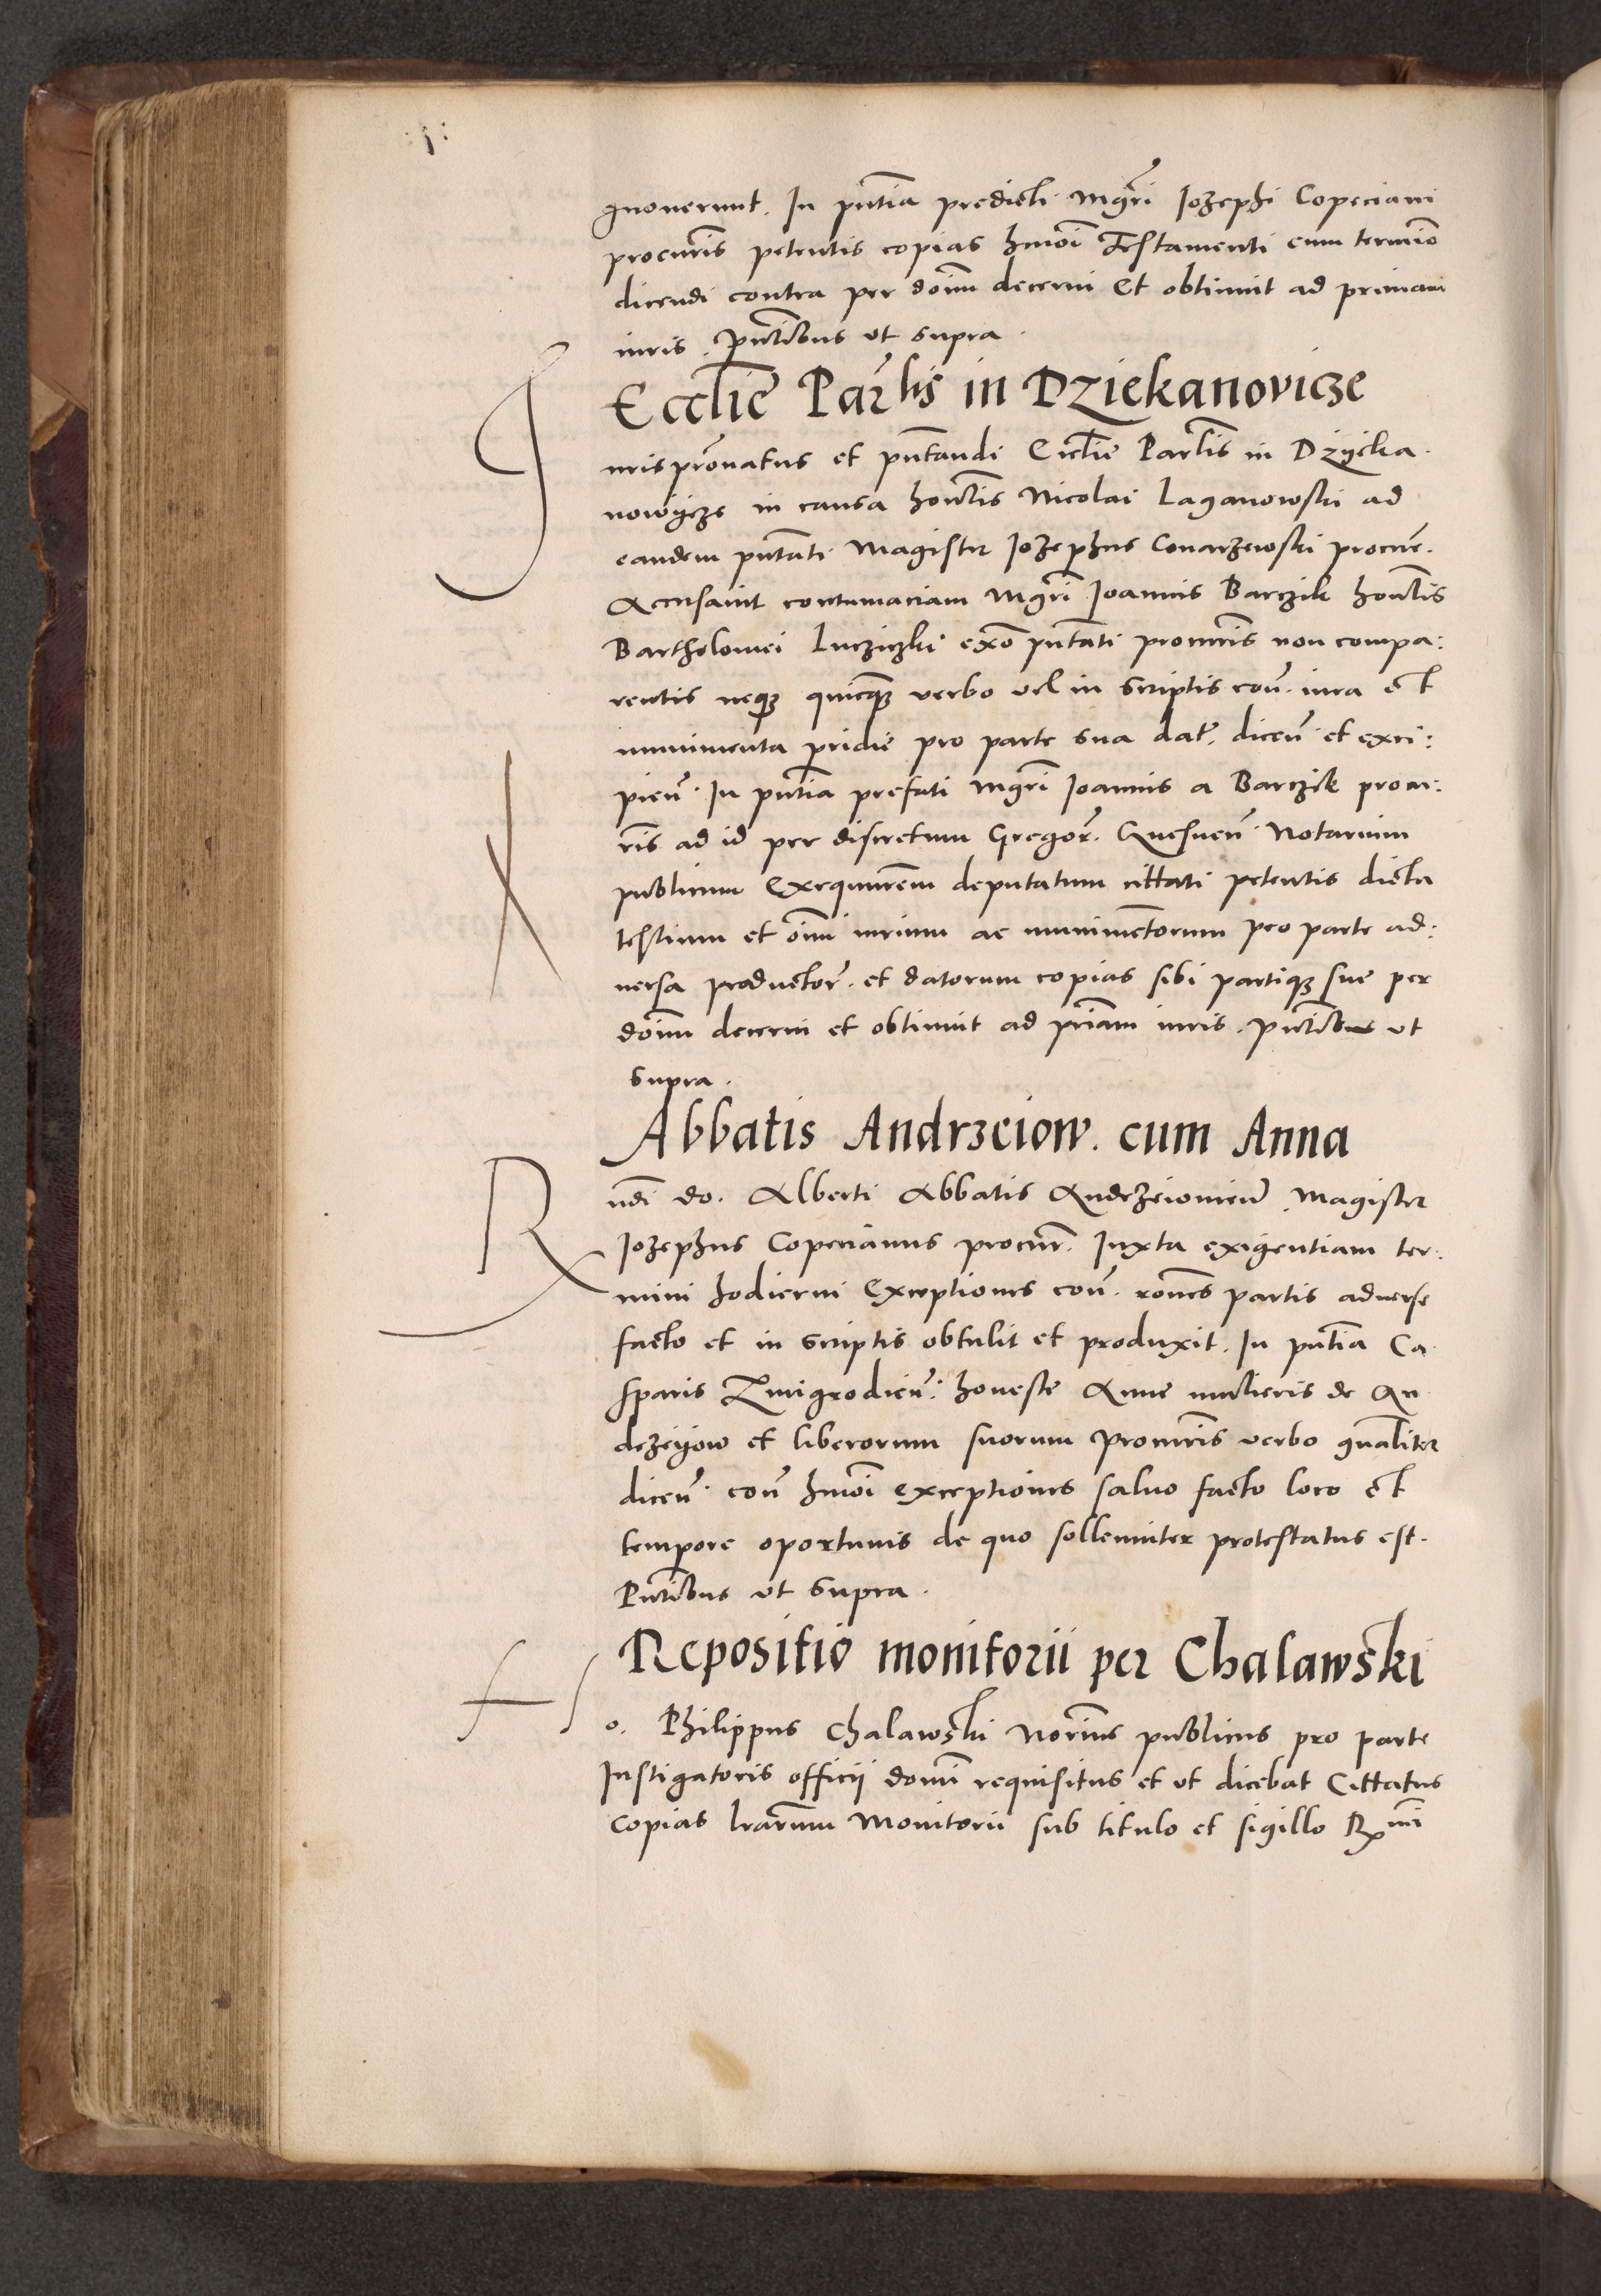 gnoverunt. In pñtia predicti Mgri Iozephi Copeciani
procuris petentis copias hmoi Testamenti cum termio
dicendi contra per doim decerni Et obtinuit ad primam
iuris. pñtibus ut supra.
Ecclie Parlis in Dziekanovicze
I
uris prõnatus et pñtandi Ecclie Parlis in Dzijeka.
nowijcze in causa honlis Nicolai Laganowski ad
eandem pñtati Magister Iozephus Conarzewski procur.
Accusavit contumaciam Mgri Ioannis Barczik honlis
Bartholomei Luczickj exõ pñtati procuris non compa:
rentis neqz quicqz verbo vel in scriptis coñ. iura et
munimenta pridie pro parte sua dat. diceñ et exci:
pieñ. In pñtia prefati Mgri Ioannis a Barczik procu:
ris ad id per discretum Gregor. Quesneñ. Notarium
publicum Exequutrem deputatum cittati petentis dicta
testium et oim iurium ac munimentorum pro parte ad:
versa productor. et datorum copias sibi partiqz sue per
doim decerni et obtinuit ad priam iuris. pñtibus ut
supra.
Abbatis Andrzeiow. cum Anna
R
ndi do. Alberti Abbatis Andrzeiovieñ Magister
Iozephus Copecianus procur. Iuxta exigentiam ter.
mini hodierni Exceptiones coñ. rones partis adverse
facto et in scriptis obtulit et produxit. In pñtia Ca
sparis Zmigrodieñ. honeste Anne mulieris de An
drzeyow et liberorum suorum Procuris verbo gnaliter
diceñ. coñ hmoi exceptiones salvo facto loco et
tempore oportunis de quo sollemniter protestatus est.
Pñtibus ut supra.
Repositio monitorii per Chalawski
H
o. Philippus Chalawski Norius publicus pro parte
Instigatoris officii domi requisitus et ut dicebat Cittatus
copias lrarum Monitorii sub titulo et sigillo Rmi